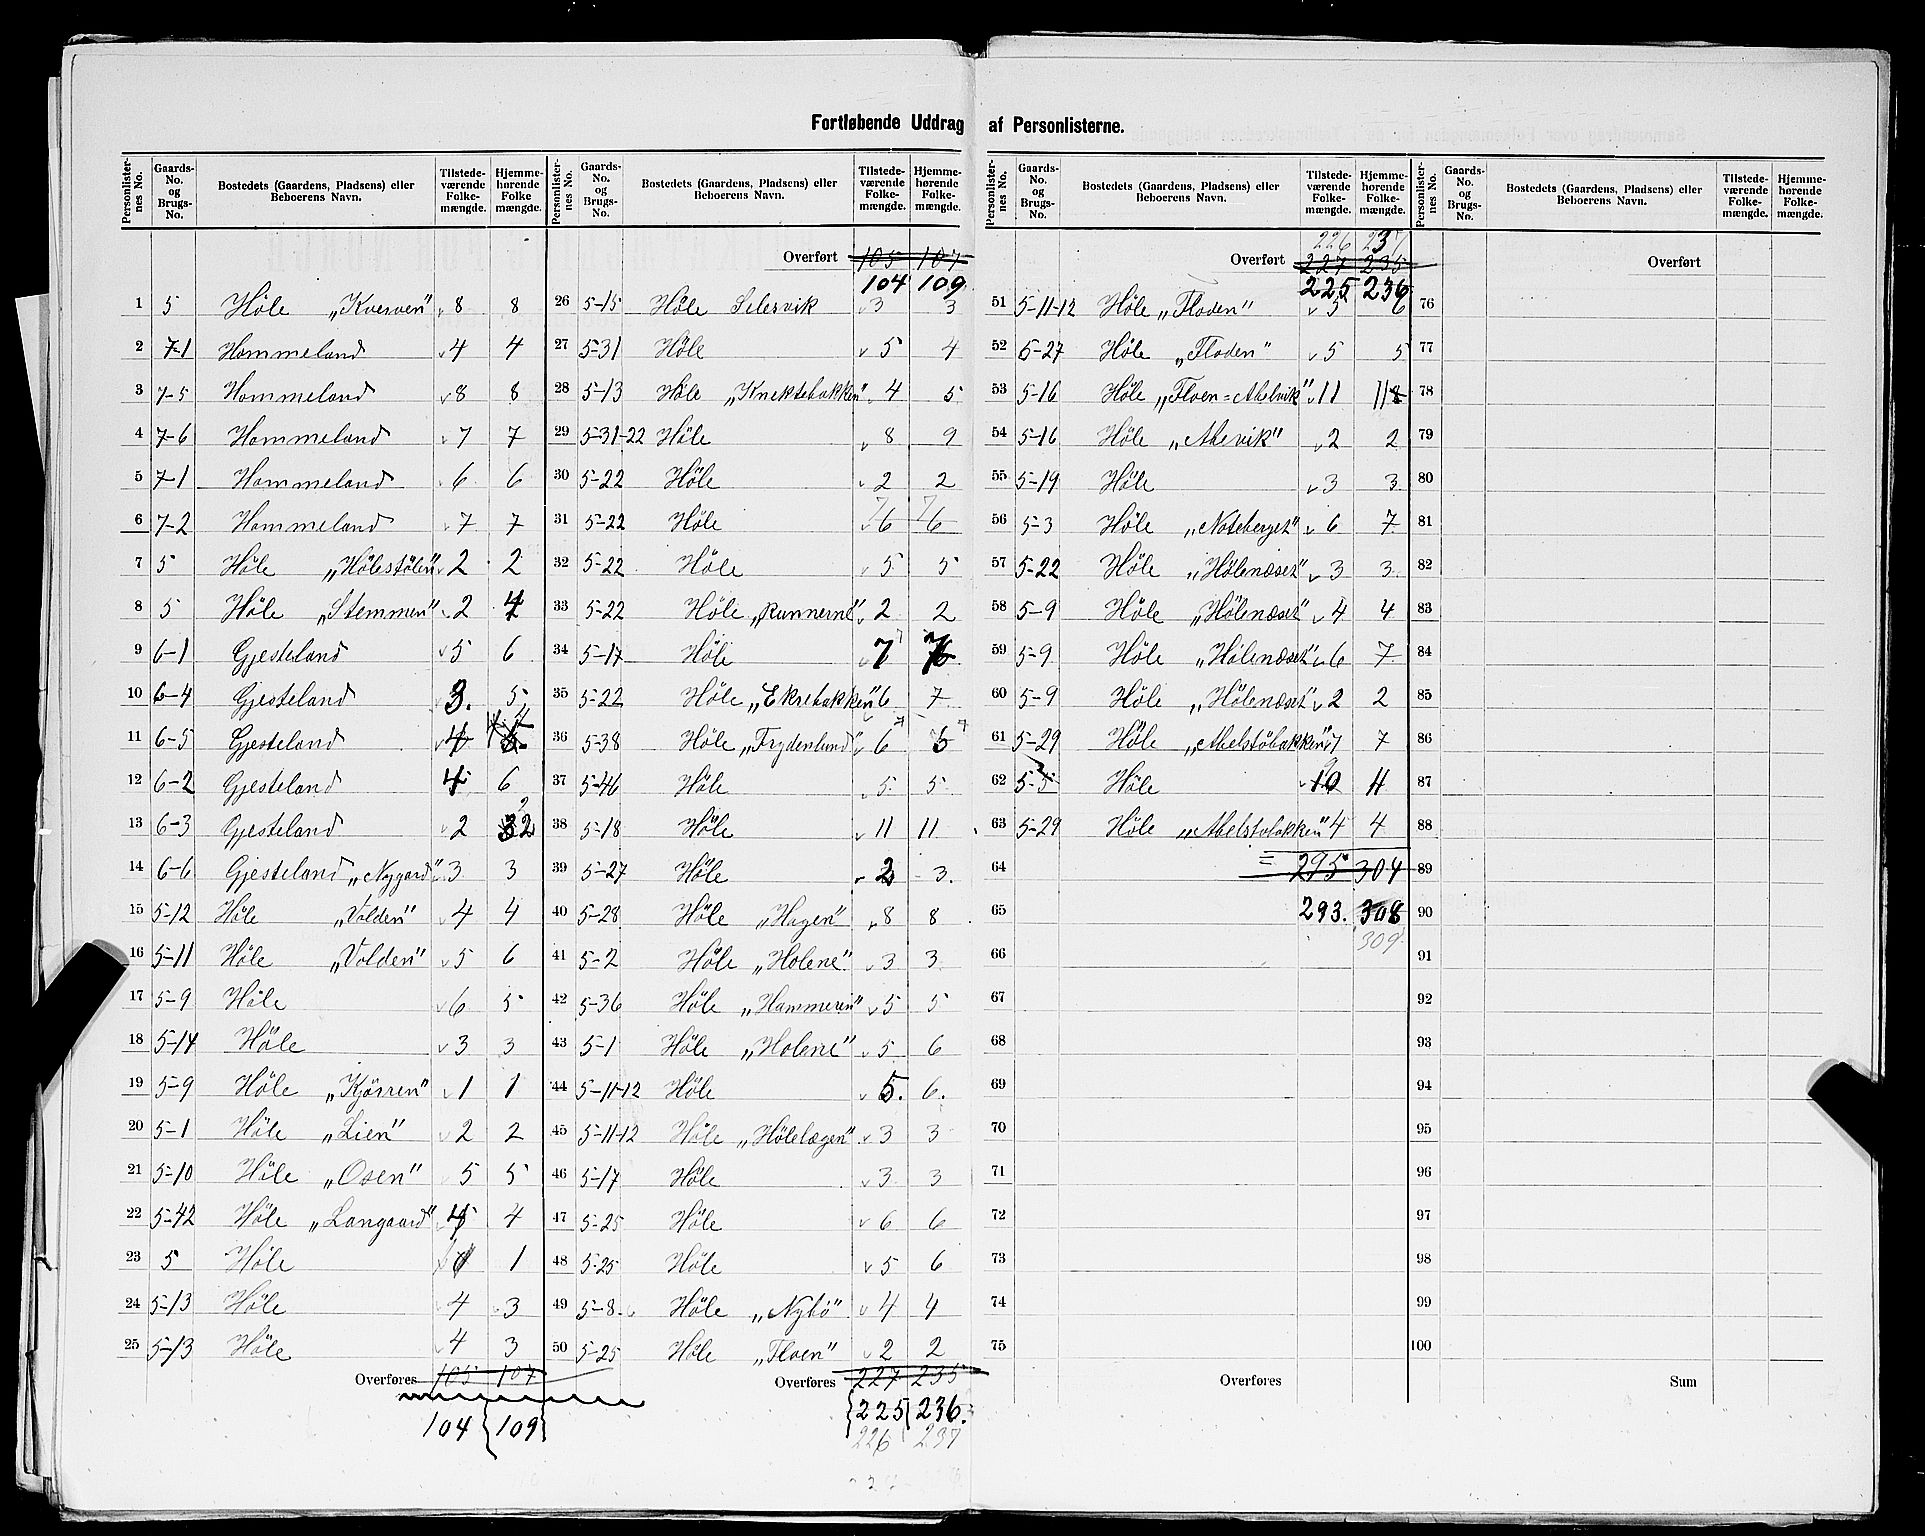 Fortløbende Uddrag af Personlisterne.
Personlisternes No. | Gaards-No. og Brugs-No. | Bostedets (Gaardens, Pladsens) eller Beboerens Navn. | Tilstedeværende Folkemængde. | Hjemmehørende Folkemængde.
1 5 Höle „Kverven" 8 8
2 7-1 Hommeland 4 4
3 7-5 Hommeland 8 8
4 7-6 Hommeland 7 7
5 7-1 Hommeland 6 6
6 7-2 Hommeland 7 7
7 5 Höle „Hölestölen" 2 2
8 5 Höle „Stemmen" 2 4
9 6-1 Gjesteland 5 6
10 6-4 Gjesteland 3. 5
11 6-5 Gjesteland 4
12 6-2 Gjesteland 4 6
13 6-3 Gjesteland 2 2
14 6-6 Gjesteland „Nygard" 3 3
15 5-12 Höle „Volden" 4 4
16 5-11 Höle „Volden" 5 6
17 5-9 Höle 6 5
18 5-14 Höle 3 3
19 5-9 Höle „Kjörren" 1 1
20 5-1 Höle „Lien" 2 2
21 5-10 Höle „Osen" 5 5
22 5-42 Höle „Langaard" 4
23 5 Höle 1
24 5-13 Höle 4 3
25 5-13 Höle 4 3
Overføres 105 107
104 109
Personlisternes No. | Gaards-No. og Brugs-No. | Bostedets (Gaardens, Pladsens) eller Beboerens Navn. | Tilstedeværende Folkemængde. | Hjemmehørende Folkemængde.
Overført 105 107
104 109
26 5-15 Höle Selesvik 3 3
27 5-31 Höle 5 4
28 5-13 Höle „Knektebakken" 4 5
29 5-31-22 Höle 8 9
30 5-22 Höle 2 2
7 7
31 5-22 Höle 6 6
32 5-22 Höle 5 5
33 5-22 Höle „Runnerne" 2 2
34 5-17 Höle 7 7
35 5-22 Höle „Ekrebakken" 6 7
36 5-38 Höle „Frydenlund" 6 6
37 5-46 Höle 5 5
38 5-18 Höle 11 11
39 5-27 Höle 2 3.
40 5-28 Höle „Hagen" 8 8
41 5-2 Höle „Holene" 3 3
42 5-36 Höle „Hammeren" 5 5
43 5-1 Höle „Holene" 5 6
44 5-11-12 Höle 5. 6.
45 5-11-12 Höle „Hölelægen" 3 3
46 5-17 Höle 3 3
47 5-25 Höle 6 6
48 5-25 Höle 5 6
49 5-8 Höle „Nybö" 4 4
50 5-25 Höle „Floen" 2 2
Overføres 227 235
225 236.
226 237
Personlisternes No. | Gaards-No. og Brugs-No. | Bostedets (Gaardens, Pladsens) eller Beboerens Navn. | Tilstedeværende Folkemængde. | Hjemmehørende Folkemængde.
226 237
Overført 227 235
225 236
51 5-11-12 Höle „Floden" 5 6
52 5-27 Höle „Floden" 5 5
53 5-16 Höle „Floen=Abelvik" 11 11
54 5-16 Höle „Abevik" 2 2
55 5-19 Höle 3 3
56 5-3 Höle „Noteberget" 6 7
57 5-22 Höle „Hölenæset" 3 3
58 5-9 Höle „Hölenæset" 4 4
59 5-9 Höle „Hölenæset" 6 7
60 5-9 Höle „Hölenæset" 2 2
61 5-29 Höle „Abelstöbakken" 7 7
62 5-5 Höle 10 11
63 5-29 Höle „Abelstobakken" 4 4
64 = 295 304
65 293. 308
309
66
67
68
69
70
71
72
73
74
75
Overføres
Personlisternes No. | Gaards-No. og Brugs-No. | Bostedets (Gaardens, Pladsens) eller Beboerens Navn. | Tilstedeværende Folkemængde. | Hjemmehørende Folkemængde.
Overført
76
77
78
79
80
81
82
83
84
85
86
87
88
89
90
91
92
93
94
95
96
97
98
99
100
Sum